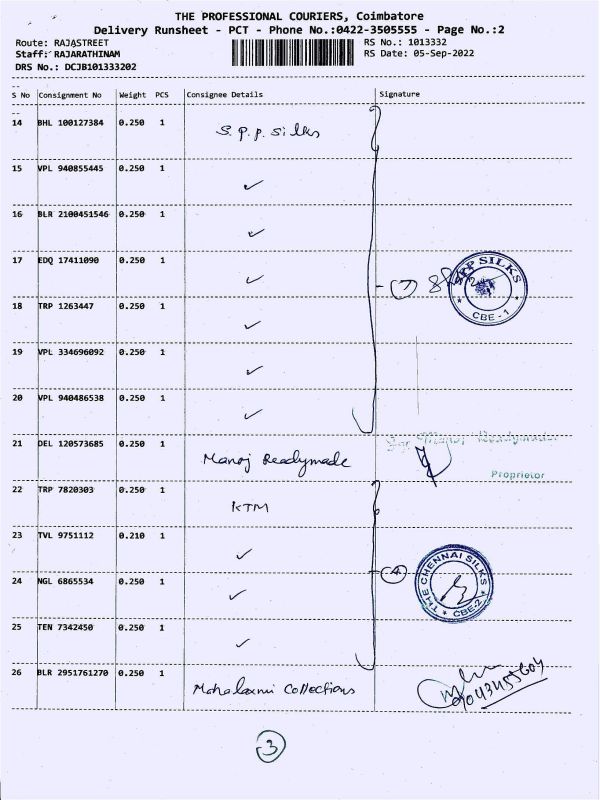 THE PROFESSIONAL COURIERS, Coimbatore
Delivery Runsheet - PCT - Phone No.:0422-3505555 - Page No.:2
Route: RAJASTREET RS No.: 1013332
Staff: RAJARATHINAM RS Date: 05-Sep-2022
DRS No.: DCJB101333202
S No Consignment No Weight PCS Consignee Details Signature
14 BHL 100127384 0.250 1 S.P.P. Silks
15 VPL 940855445 0.250 1 ✓
16 BLR 2100451546 0.250 1 ✓
17 EDQ 17411090 0.250 1 ✓ - (7)
SPP SILKS
* CBE - 1 *
18 TRP 1263447 0.250 1 ✓
19 VPL 334696092 0.250 1 ✓
20 VPL 940486538 0.250 1 ✓
21 DEL 120573685 0.250 1 Manoj Readymade
For Manoj Readymades
Proprietor
22 TRP 7820303 0.250 1 KTM
23 TVL 9751112 0.210 1 ✓
24 NGL 6865534 0.250 1 ✓ (4)
THE CHENNAI SILKS
* CBE-2 *
25 TEN 7342450 0.250 1 ✓
26 BLR 2951761270 0.250 1 Mahalaxmi Collections
3